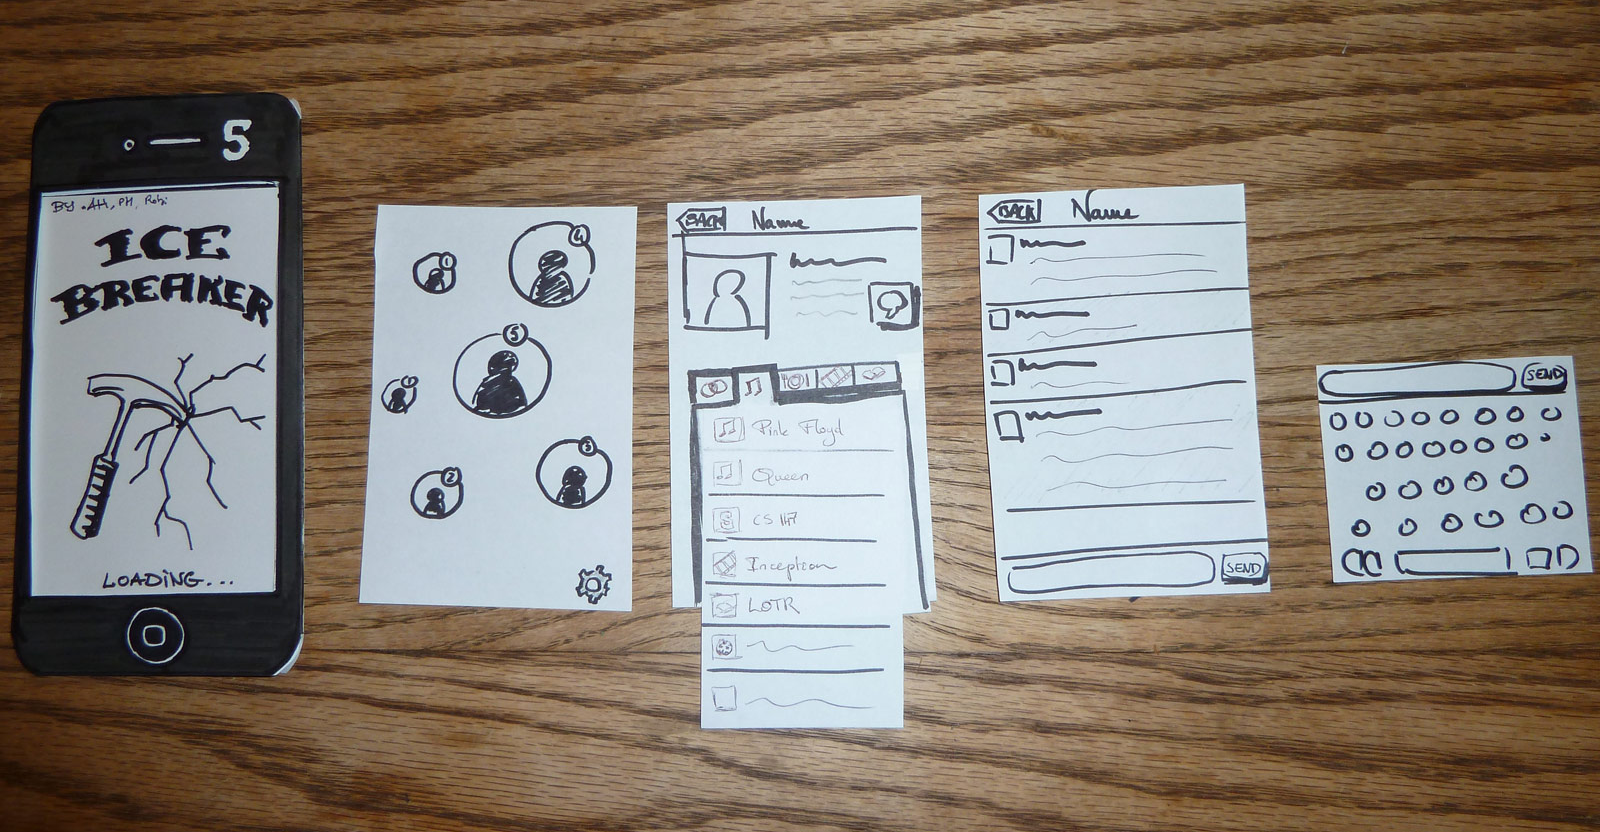 5
BY .AH, PH, Robi
ICE
BREAKER
LOADING...
1
4
5
1
2
3
BACK Name
Pink Floyd
Queen
CS 147
Inception
LOTR
BACK Name
SEND
SEND